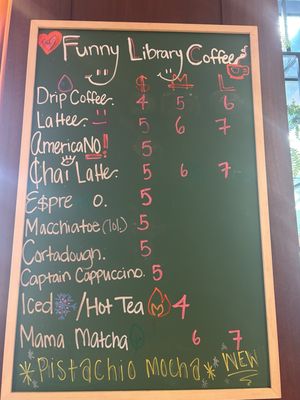 Funny Library Coffee
$ M L
Drip Coffee. 4 5 6
Lattee 5 6 7
AmericaNO!! 5
Chai Latte. 5 6 7
E$pre o. 5
Macchiatoe (lol) 5
Cortadough. 5
Captain Cappuccino. 5
Iced /Hot Tea 4
Mama Matcha 6 7
*Pistachio Mocha* NEW